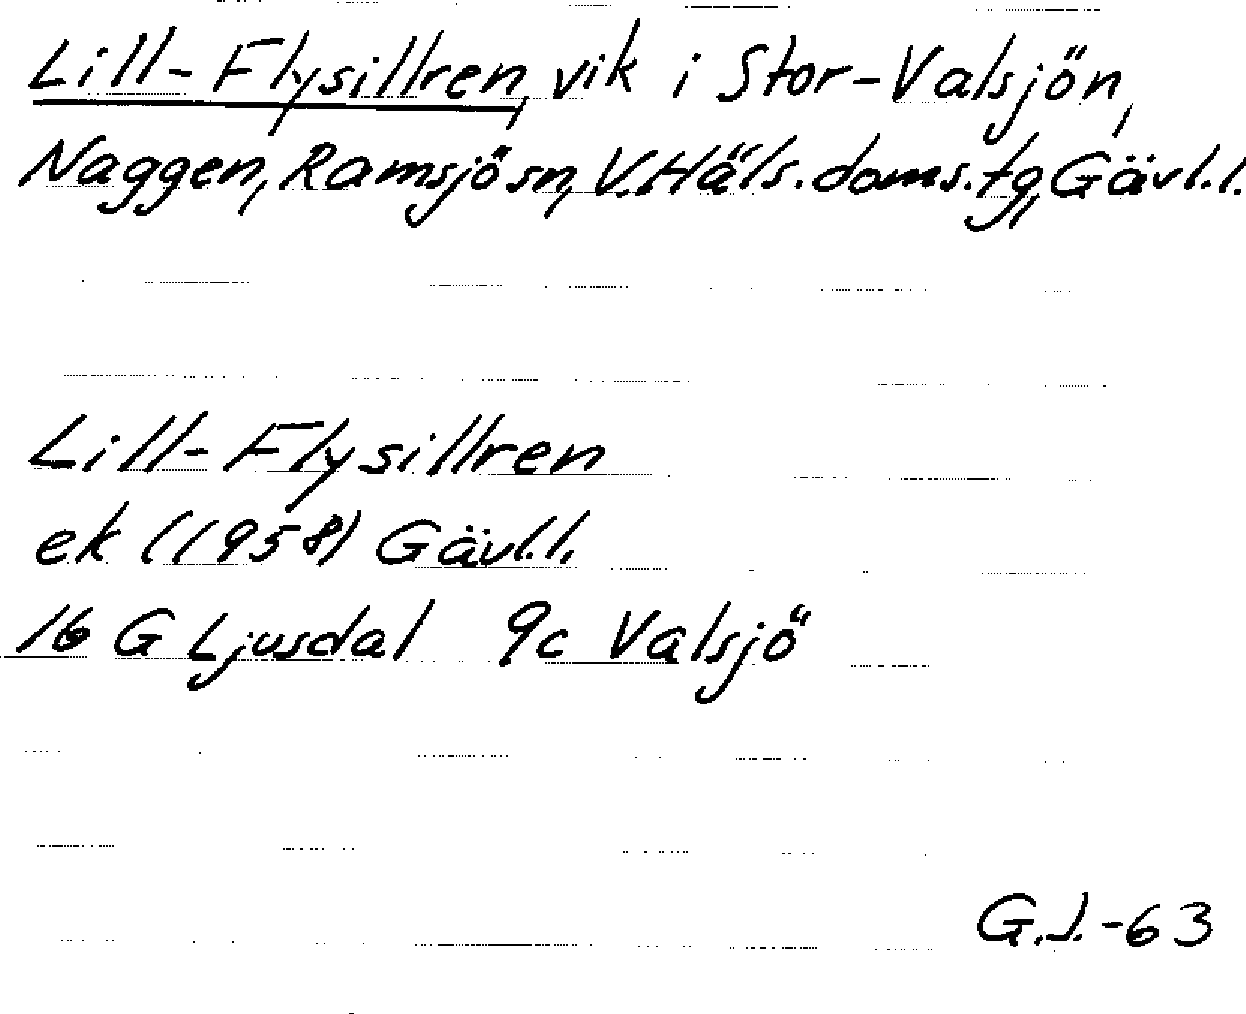 Lill-Flysillren, vik i Stor-Valsjön,
Naggen, Ramsjö sn, V.Häls.doms.tg, Gävl.l.
Lill-Flysillren
ek (1958) Gävl.l.
16 G Ljusdal 9c Valsjö
G.J.-63